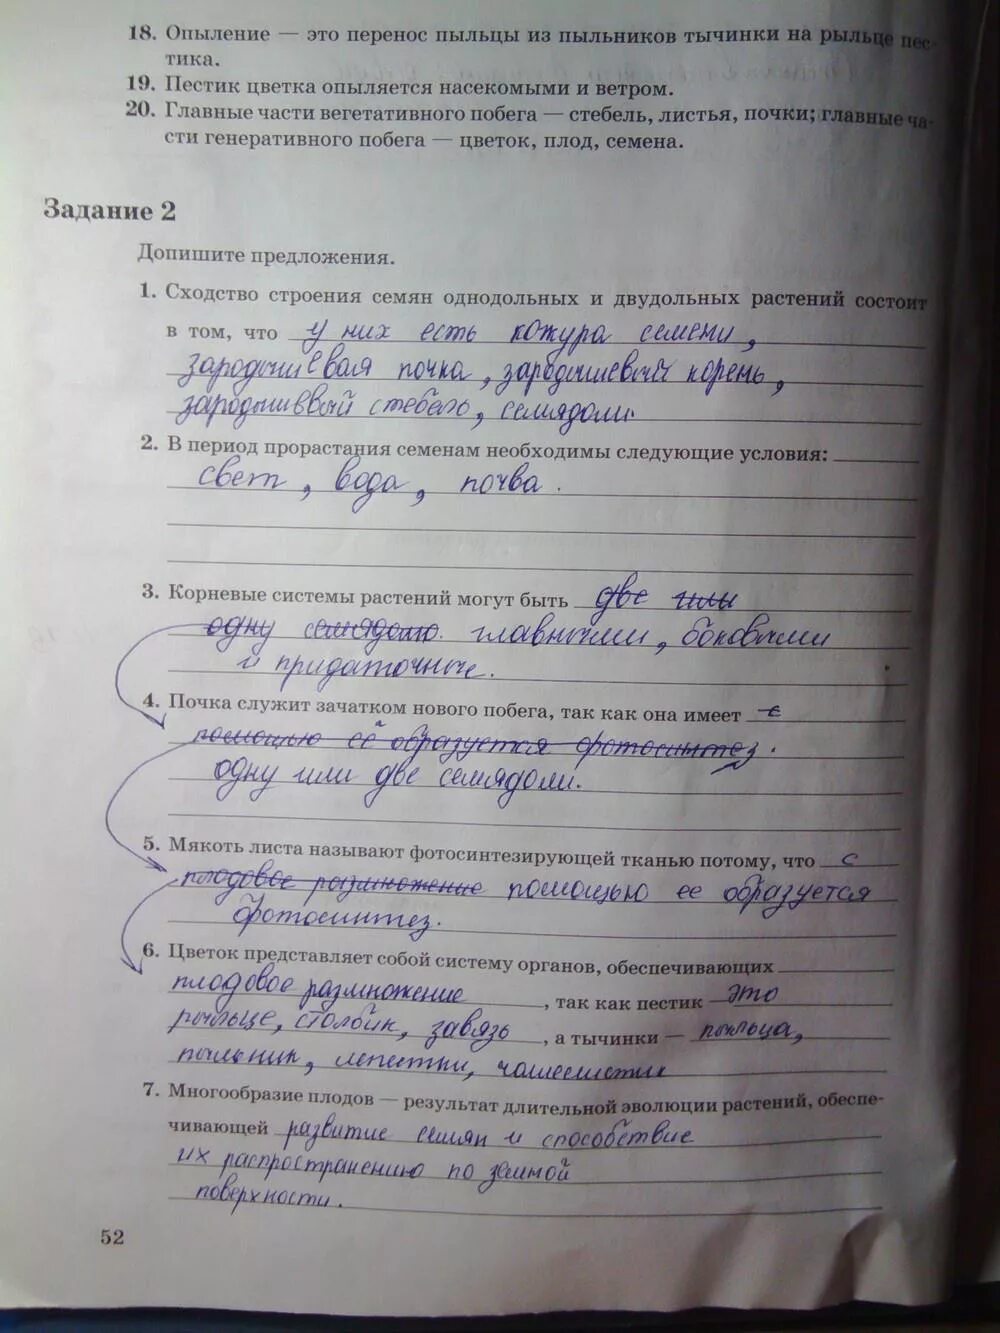 18. Опыление — это перенос пыльцы из пыльников тычинки на рыльце пес-
тика.
19. Пестик цветка опыляется насекомыми и ветром.
20. Главные части вегетативного побега — стебель, листья, почки; главные ча-
сти генеративного побега — цветок, плод, семена.
Задание 2
Допишите предложения.
1. Сходство строения семян однодольных и двудольных растений состоит
в том, что у них есть кожура семени,
зародышевая почка, зародышевый корень,
зародышввый стебель, семядоли.
2. В период прорастания семенам необходимы следующие условия:
свет, вода, почва.
3. Корневые системы растений могут быть две или
одну семядолю. главными, боковыми
и придаточные.
4. Почка служит зачатком нового побега, так как она имеет с
помощью её образуется фотосинтез.
одну или две семядоли.
5. Мякоть листа называют фотосинтезирующей тканью потому, что с
плодовое размножение помощью ее образуется
фотосинтез.
6. Цветок представляет собой систему органов, обеспечивающих
плодовое размножение, так как пестик — это
рыльце, столбик, завязь, а тычинки — пыльца,
пыльник, лепестки, чашелистик
7. Многообразие плодов — результат длительной эволюции растений, обеспе-
чивающей развитие семян и способствие
их распространению по земной
поверхности.
52